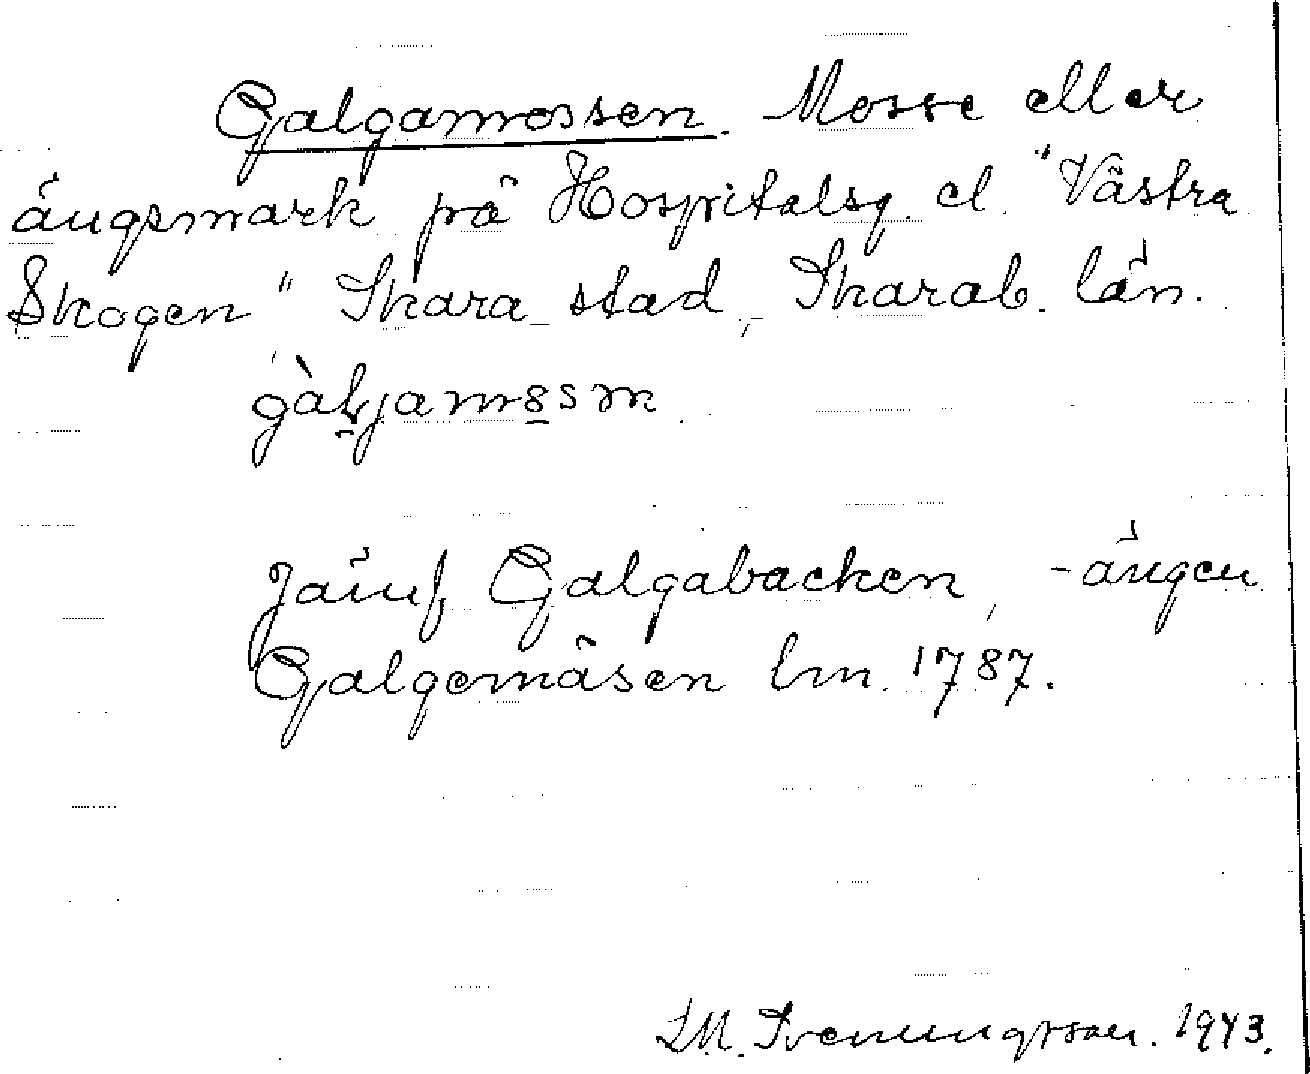 Galgamossen. Mosse eller
ängsmark på Hospitalsg. el. "Västra
Skogen" Skara stad, Skarab. län.
gàłjam8sn
Jämf. Galgabacken, -ängen
Galgemåsen lm. 1787.
L.M. Svenungsson. 1943.